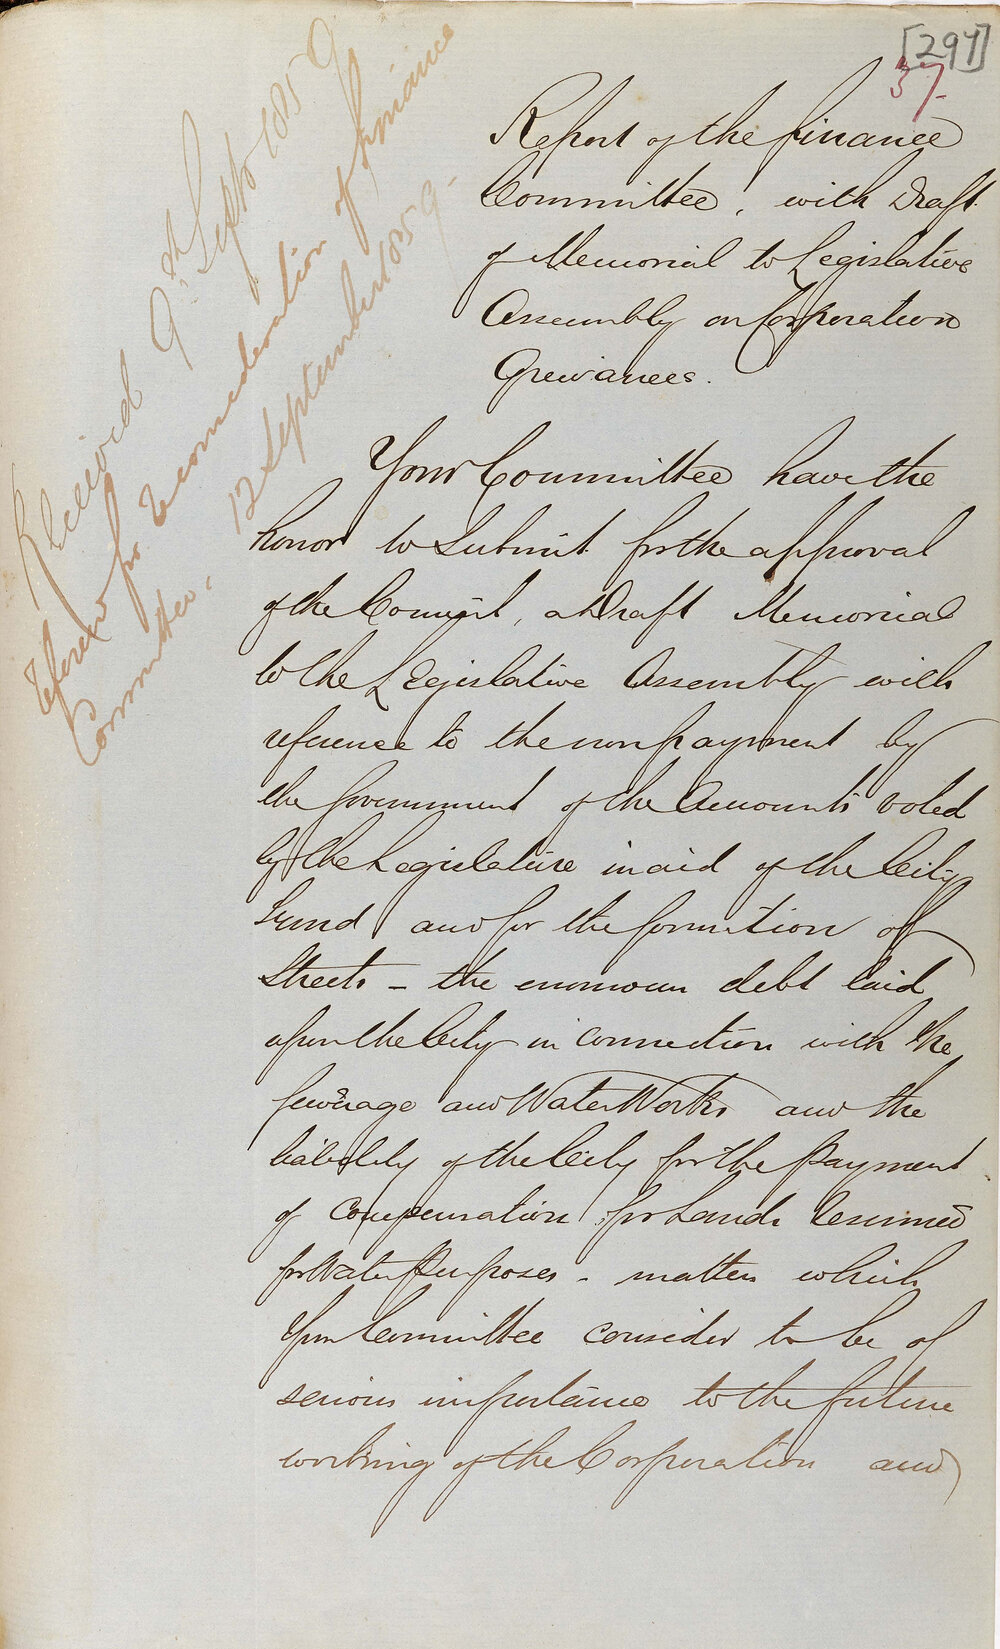 [297]
37
Report of the Finance
Committee, with Draft
of Memorial to Legislative
Assembly on Corporation
Grievances.
Received 9th Septr 1859
Referred for reconsideration of Finance
Committee. 12 September 1859 -
Your Committee have the
honor to submit for the approval
of the Council, a Draft Memorial
to the Legislative Assembly with
reference to the non payment by
the Government of the Amounts voted
by the Legislature in aid of the City
Fund and for the formation of
Streets - the enormous debt laid
upon the City in connection with the
Sewerage and Water Works and the
liability of the City for the payment
of compensation for Lands resumed
for Water Purposes - matters which
Your Committee consider to be of
serious importance to the future
working of the Corporation and